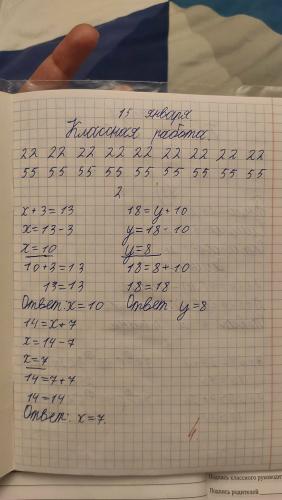 15 января
Классная работа
22 22 22 22 22 22 22 22 22
55 55 55 55 55 55 55 55 55
2
x+3=13
x=13-3
x=10
10+3=13
13=13
Ответ: x=10
18=y+10
y=18-10
y=8
18=8+10
18=18
Ответ: y=8
14=x+7
x=14-7
x=7
14=7+7
14=14
Ответ: x=7.
Подпись классного руковод
Подпись родителей